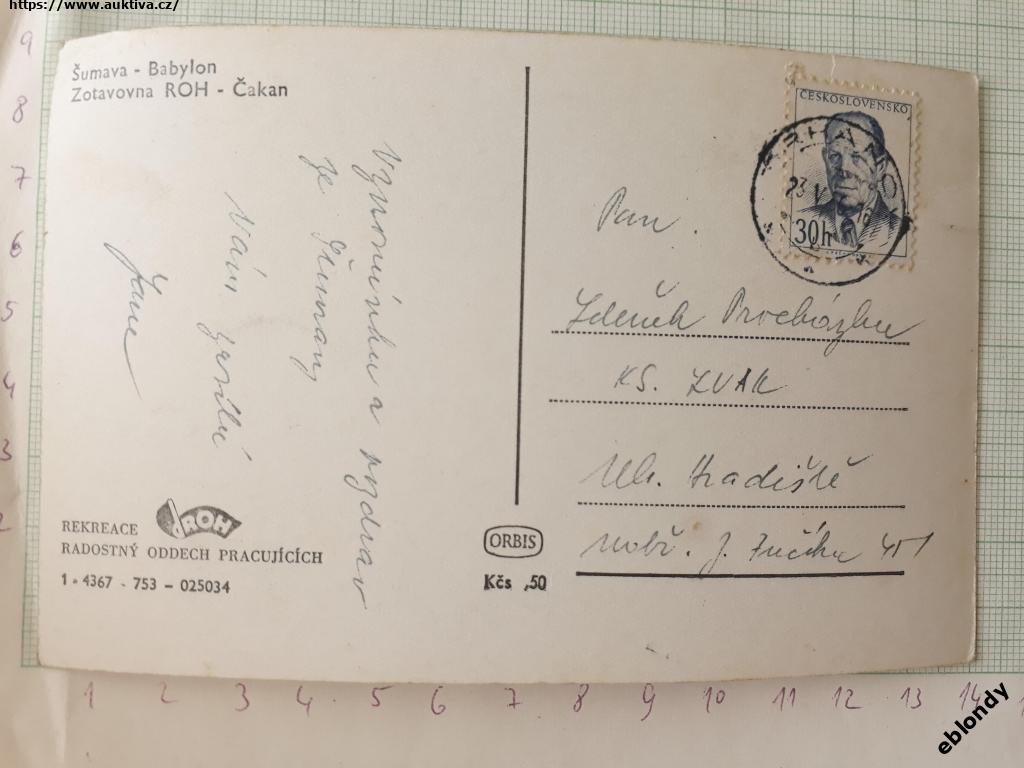 https://www.auktiva.cz/
Šumava - Babylon
Zotavovna ROH - Čakan
Vzpomínku a pozdrav
ze Šumavy
Vám
ČESKOSLOVENSKO
23 V
30h
Pan
Zdeněk Procházka
KS. ZVAK
Uh. Hradiště
nábř. J. Fučíka 451
REKREACE ROH
RADOSTNÝ ODDECH PRACUJÍCÍCH
1 - 4367 - 753 - 025034
ORBIS
Kčs ,50
9
8
7
6
5
4
3
2
1 2 3 4 5 6 7 8 9 10 11 12 13 14
eblondy